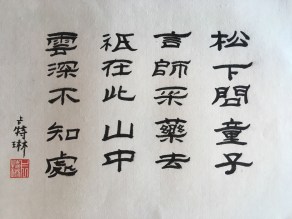 松下問童子
言師采藥去
祇在此山中
雲深不知處
卜特琳